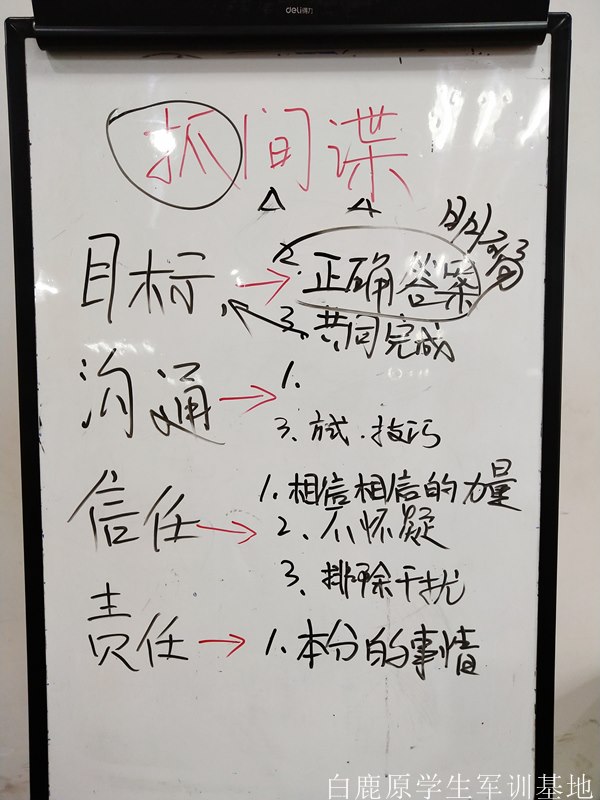 deli得力
抓间谍
目标 → 2. 正确答案
3. 共同完成
沟通 → 1.
3. 方式.技巧
信任 → 1. 相信相信的力量
2. 不怀疑
3. 排除干扰
责任 → 1. 本分的事情
白鹿原学生军训基地